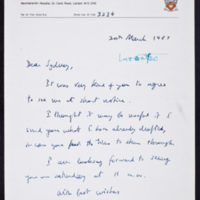 20th March 1981
Dear Sydney,
It was very kind of you to agree
to see me at short notice.
I thought it may be useful if I
send you what I have already drafted,
in case you have the time to skim through
I am looking forward to seeing
you on Saturday at 11 a.m.
With best wishes